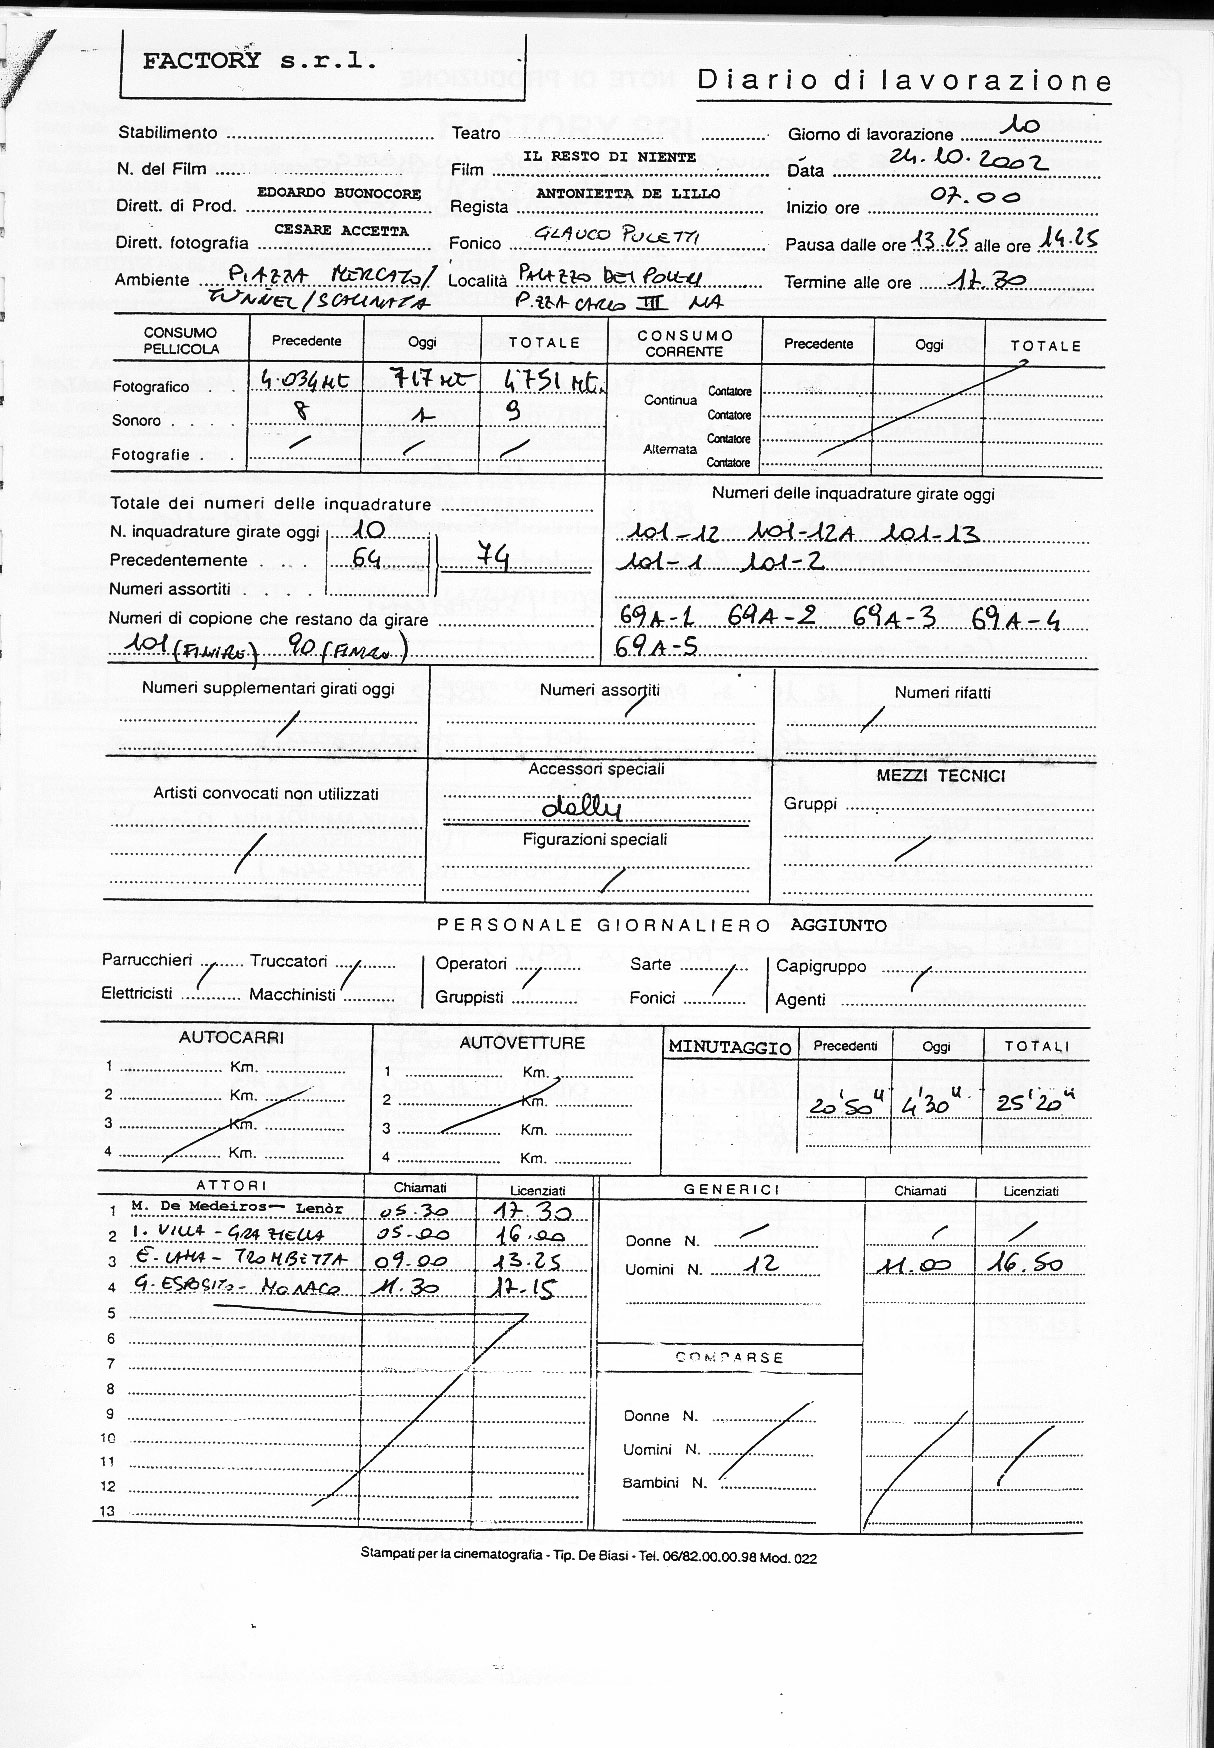 FACTORY s.r.l.
Diario di lavorazione
Stabilimento Teatro Giorno di lavorazione 10
N. del Film Film IL RESTO DI NIENTE Data 24.10.2002
Dirett. di Prod. EDOARDO BUONOCORE Regista ANTONIETTA DE LILLO Inizio ore 07.00
Dirett. fotografia CESARE ACCETTA Fonico GLAUCO PULETTI Pausa dalle ore 13.25 alle ore 14.25
Ambiente PIAZZA MERCATO/ Località PALAZZO DEI Termine alle ore 17.30
TUNNEL/SCALINATA P.ZZA CARLO III NA
CONSUMO PELLICOLA Precedente Oggi TOTALE CONSUMO CORRENTE Precedente Oggi TOTALE
Fotografico 4.034 MT 717 MT 4751 MT.
Continua Contatore
Sonoro 8 1 9 Contatore
Alternata Contatore
Fotografie / / / Contatore
Totale dei numeri delle inquadrature Numeri delle inquadrature girate oggi
N. inquadrature girate oggi 10 101-12 101-12A 101-13
Precedentemente 64 74 101-1 101-2
Numeri assortiti
Numeri di copione che restano da girare 69A-1 69A-2 69A-3 69A-4
101 (FINIRE) 90 69A-5
Numeri supplementari girati oggi Numeri assortiti Numeri rifatti
/ / /
Artisti convocati non utilizzati Accessori speciali MEZZI TECNICI
dolly Gruppi
/ Figurazioni speciali /
/
PERSONALE GIORNALIERO AGGIUNTO
Parrucchieri / Truccatori / Operatori / Sarte / Capigruppo /
Elettricisti Macchinisti Gruppisti Fonici Agenti
AUTOCARRI AUTOVETTURE MINUTAGGIO Precedenti Oggi TOTALI
1 Km. 1 Km.
2 Km. 2 Km. 20'50" 4'30" 25'20"
3 Km. 3 Km.
4 Km. 4 Km.
ATTORI Chiamati Licenziati GENERICI Chiamati Licenziati
1 M. De Medeiros- Lenòr 05.30 17.30
2 I. VILLA - GRAZIELLA 05.00 16.00 Donne N. / / /
3 E. LAMA - TROMBETTA 09.00 13.25 Uomini N. 12 11.00 16.50
4 G. ESPOSITO - MONACO 11.30 17.15
5
6
7 COMPARSE
8
9 Donne N.
10
11 Uomini N.
12 Bambini N.
13
Stampati per la cinematografia - Tip. De Biasi - Tel. 06/82.00.00.98 Mod. 022